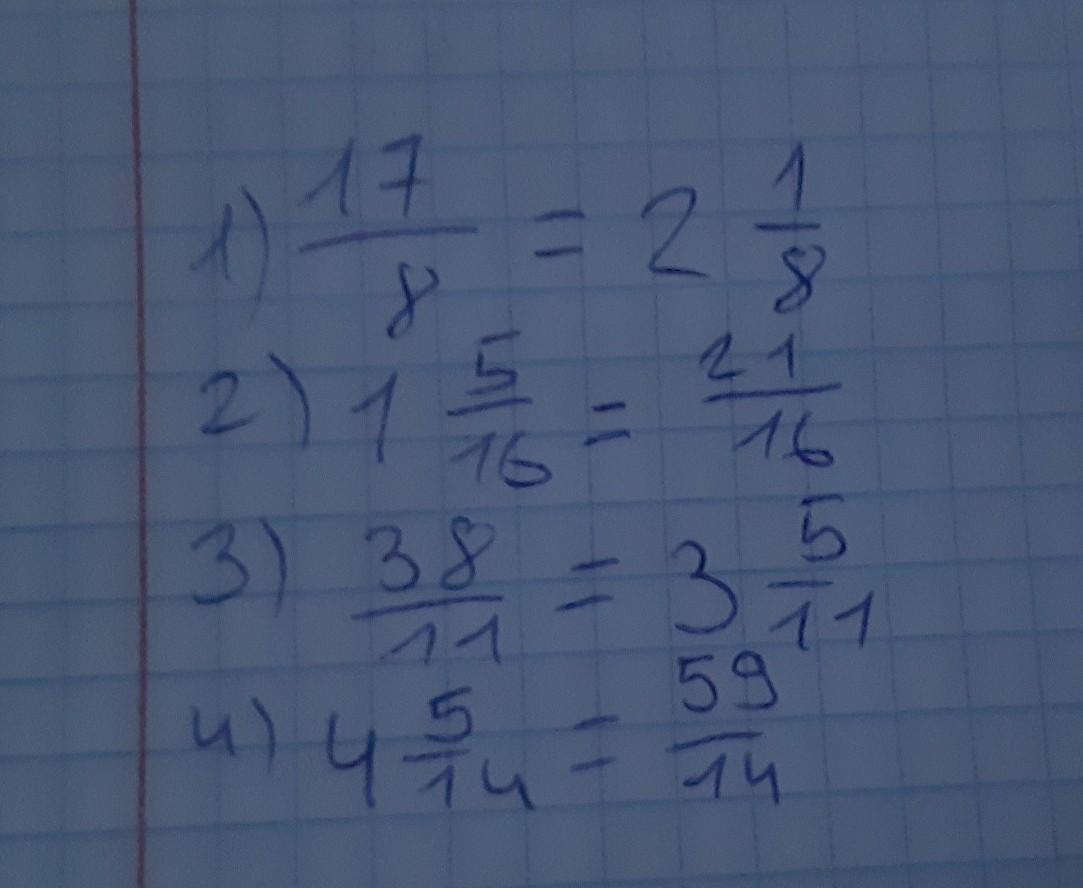 1) 17/8 = 2 1/8
2) 1 5/16 = 21/16
3) 38/11 = 3 5/11
4) 4 5/14 = 59/14